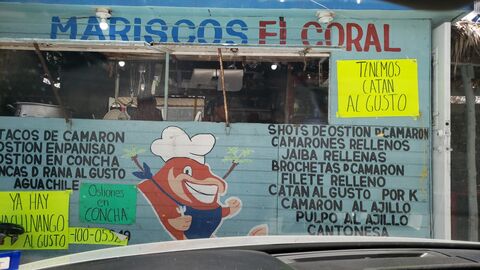 MARISCOS EL CORAL
TENEMOS
CATAN
AL GUSTO
TACOS DE CAMARON
OSTION ENPANISAD
OSTION EN CONCHA
NCAS D RANA AL GUSTO
AGUACHILE
Ostiones
en
CONCHA
YA HAY
AL GUSTO
SHOTS DE OSTION D CAMARON
CAMARONES RELLENOS
JAIBA RELLENAS
BROCHETAS D CAMARON
FILETE RELLENO
CATAN AL GUSTO POR K
CAMARON AL AJILLO
PULPO AL AJILLO
CANTONESA